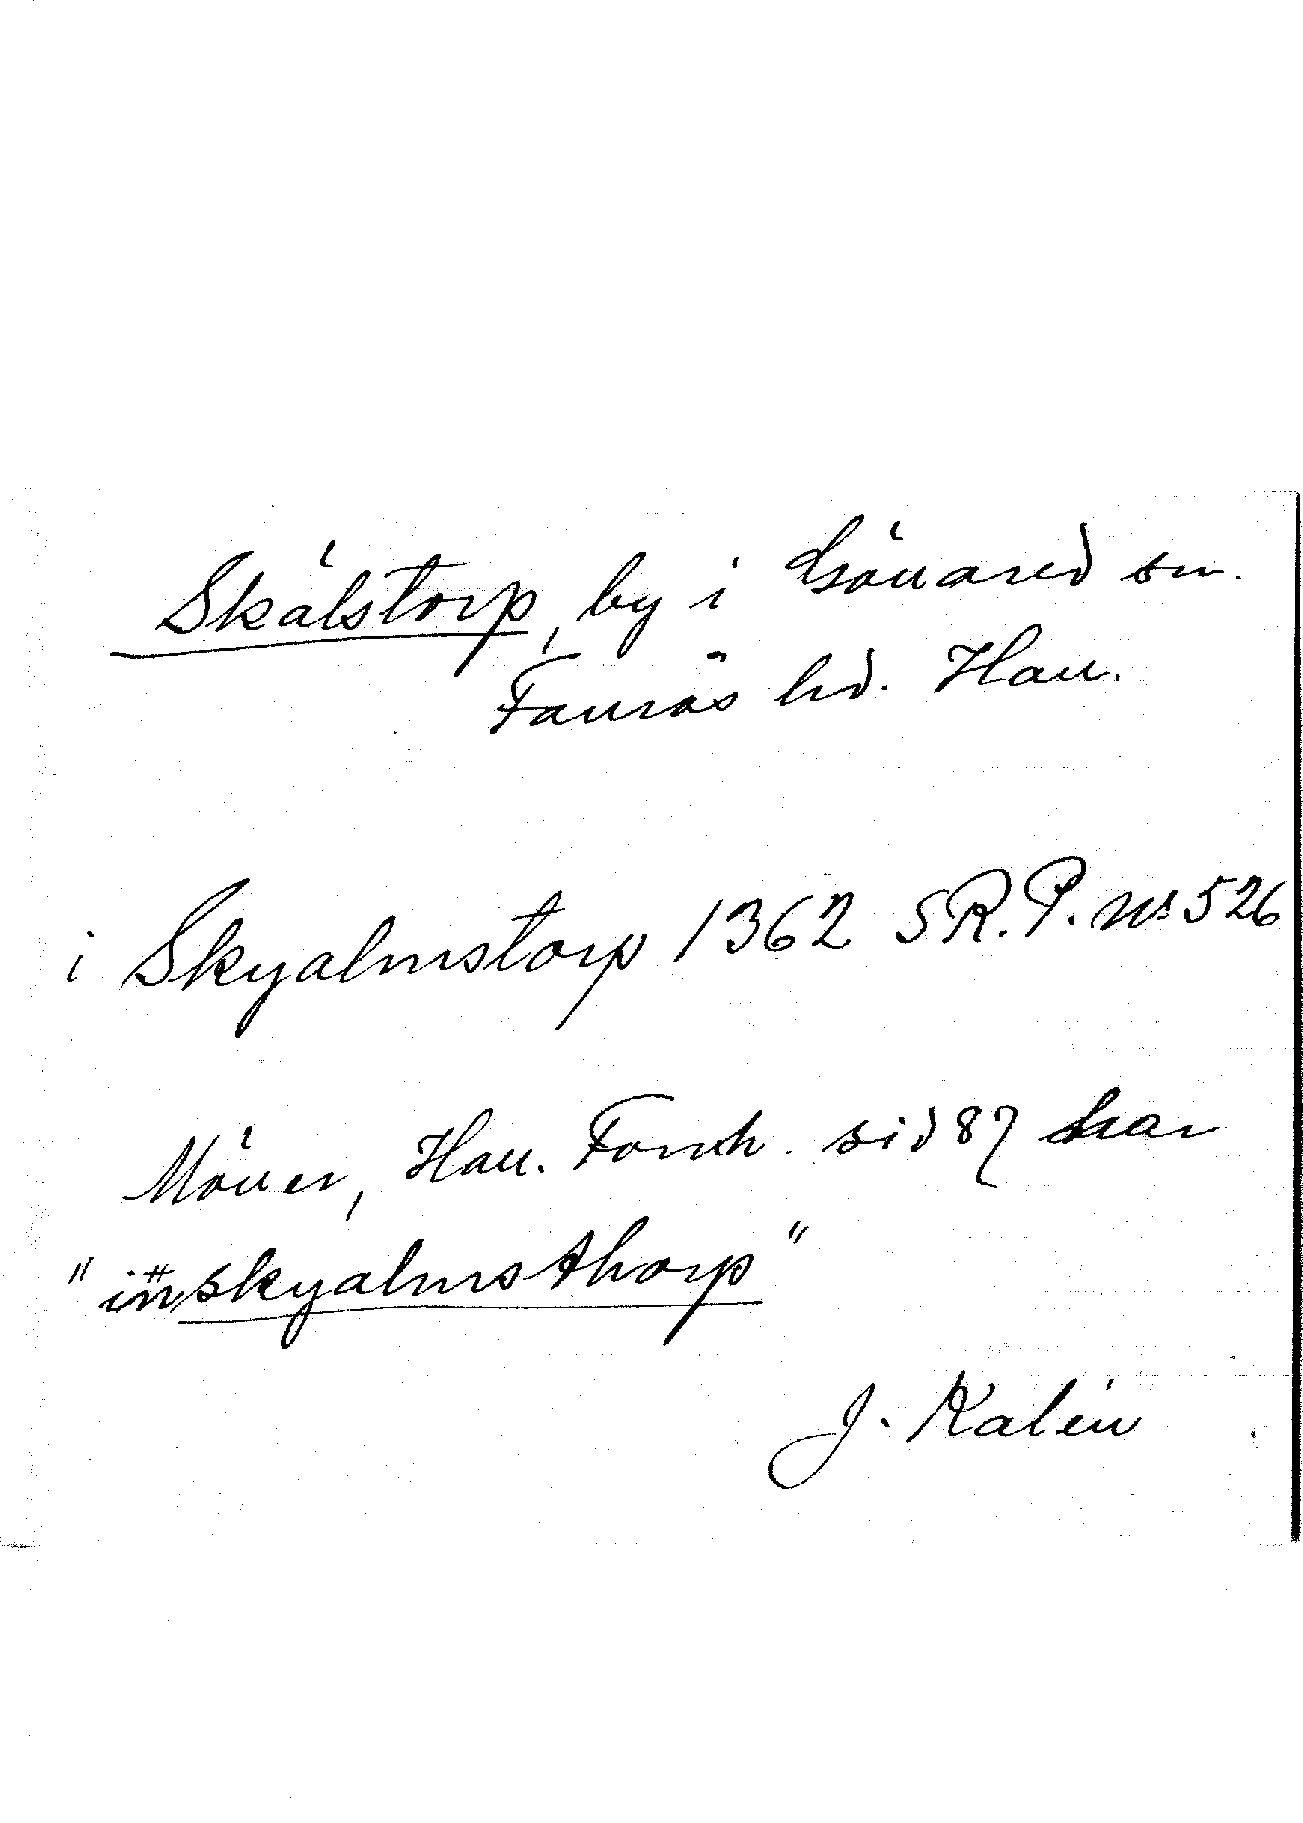 Skälstorp, by i Gällared sn.
Faurås hd. Hall.
i Skyalmstorp 1362 SR.P. nr 526
Möller, Hall. Fornh. sid 87 har
"in skyalmsthorp"
J. Kalén